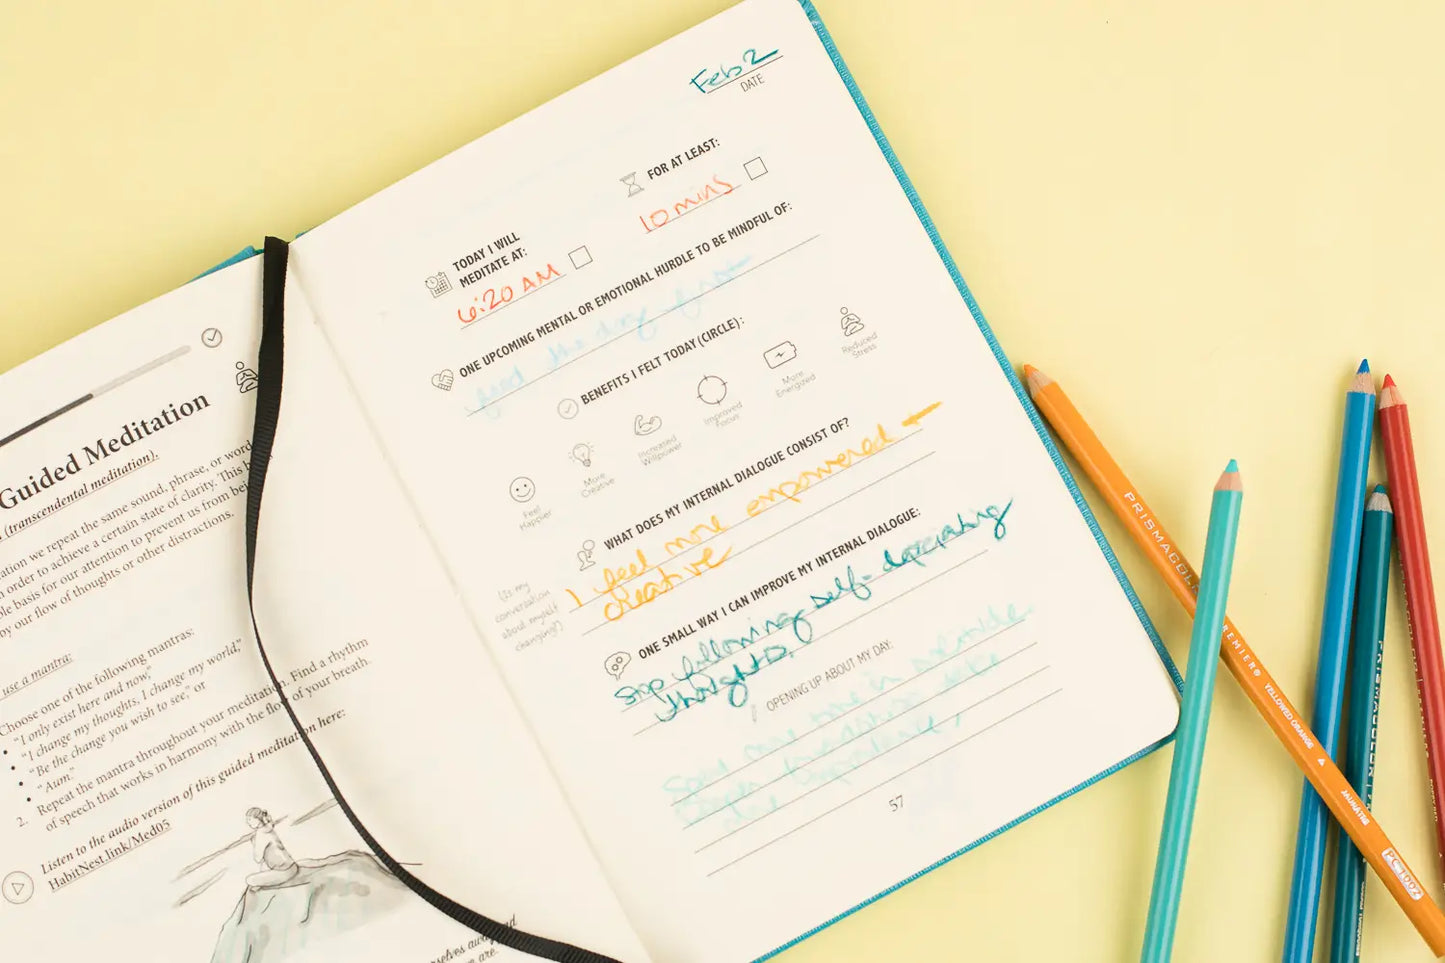 Guided Meditation
(transcendental meditation).
we repeat the same sound, phrase, or word
order to achieve a certain state of clarity. This
basis for our attention to prevent us from
by our flow of thoughts or other distractions.
use a mantra:
Choose one of the following mantras:
• "I only exist here and now,"
• "I change my thoughts, I change my world,"
• "Be the change you wish to see," or
• "Aum."
2. Repeat the mantra throughout your meditation. Find a rhythm
of speech that works in harmony with the flow of your breath.
Listen to the audio version of this guided meditation here:
HabitNest.link/Med05
Feb 2
DATE
TODAY I WILL
MEDITATE AT:
6:20 AM
FOR AT LEAST:
10 mins
ONE UPCOMING MENTAL OR EMOTIONAL HURDLE TO BE MINDFUL OF:
BENEFITS I FELT TODAY (CIRCLE):
Feel
Happier
More
Creative
Increased
Willpower
Improved
Focus
More
Energized
Reduced
Stress
WHAT DOES MY INTERNAL DIALOGUE CONSIST OF?
(Is my
conversation
about myself
changing?)
I feel more empowered +
creative
ONE SMALL WAY I CAN IMPROVE MY INTERNAL DIALOGUE:
Stop following self-depreciating
thoughts.
OPENING UP ABOUT MY DAY:
57
PRISMACOLOR
PREMIER®
YELLOWED ORANGE
JAUNATRE
PC 1002
PRISMACOLOR